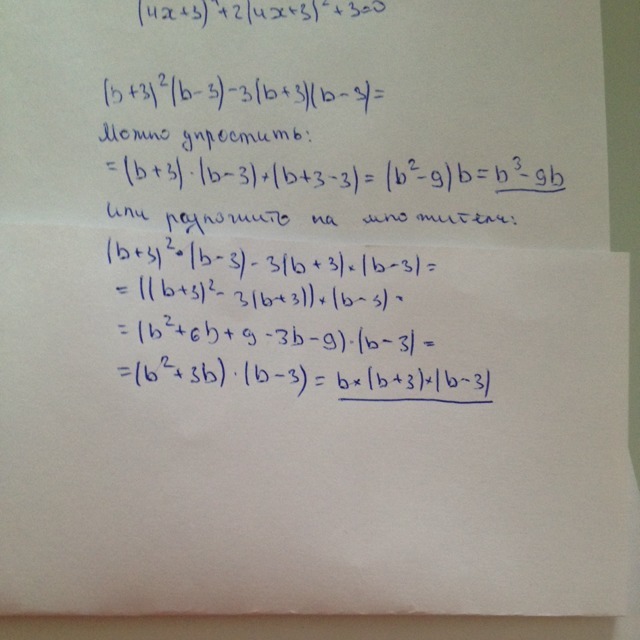 (4x+3)⁴+2(4x+3)²+3=0
(b+3)²(b-3)-3(b+3)(b-3)=
Можно упростить:
=(b+3)·(b-3)×(b+3-3)=(b²-9)b=b³-9b
Или разложить на множители:
(b+3)²·(b-3)-3(b+3)×(b-3)=
=((b+3)²-3(b+3))×(b-3)=
=(b²+6b+9-3b-9)·(b-3)=
=(b²+3b)·(b-3)=b×(b+3)×(b-3)